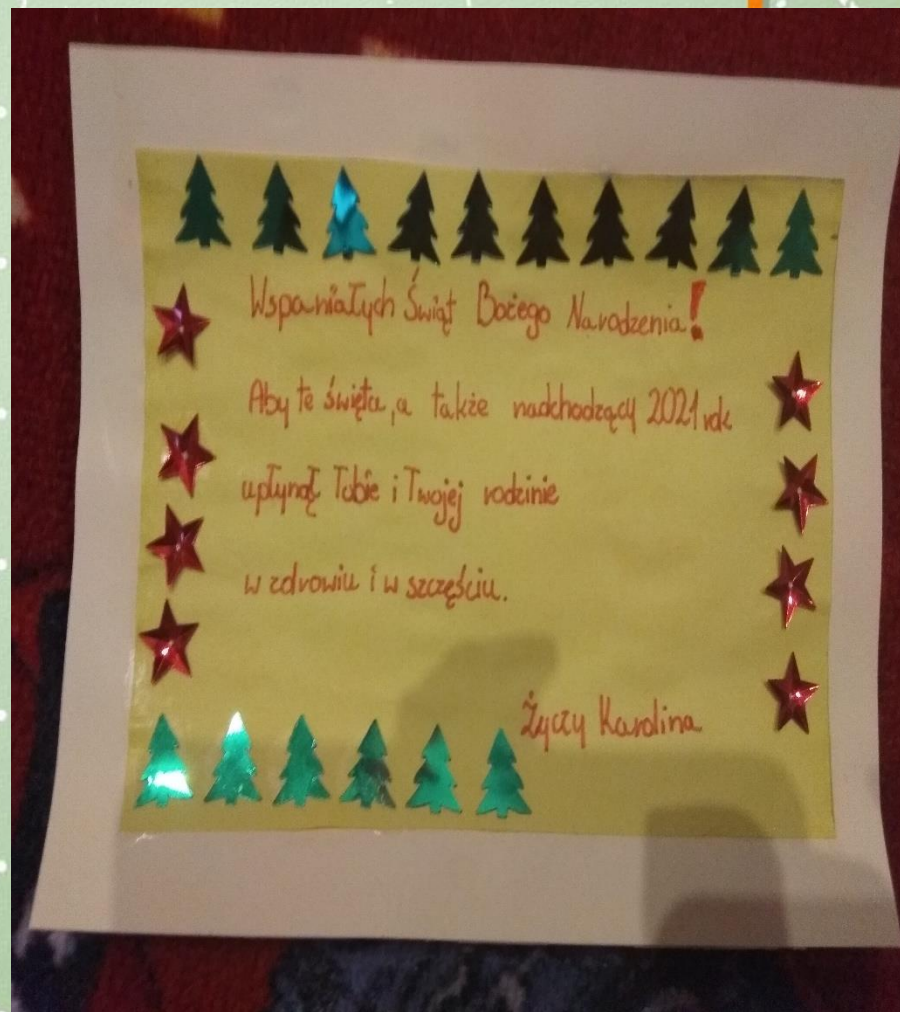 Wspaniałych Świąt Bożego Narodzenia!
Aby te święta, a także nadchodzący 2021 rok
upłynął Tobie i Twojej rodzinie
w zdrowiu i w szczęściu.
Życzy Karolina